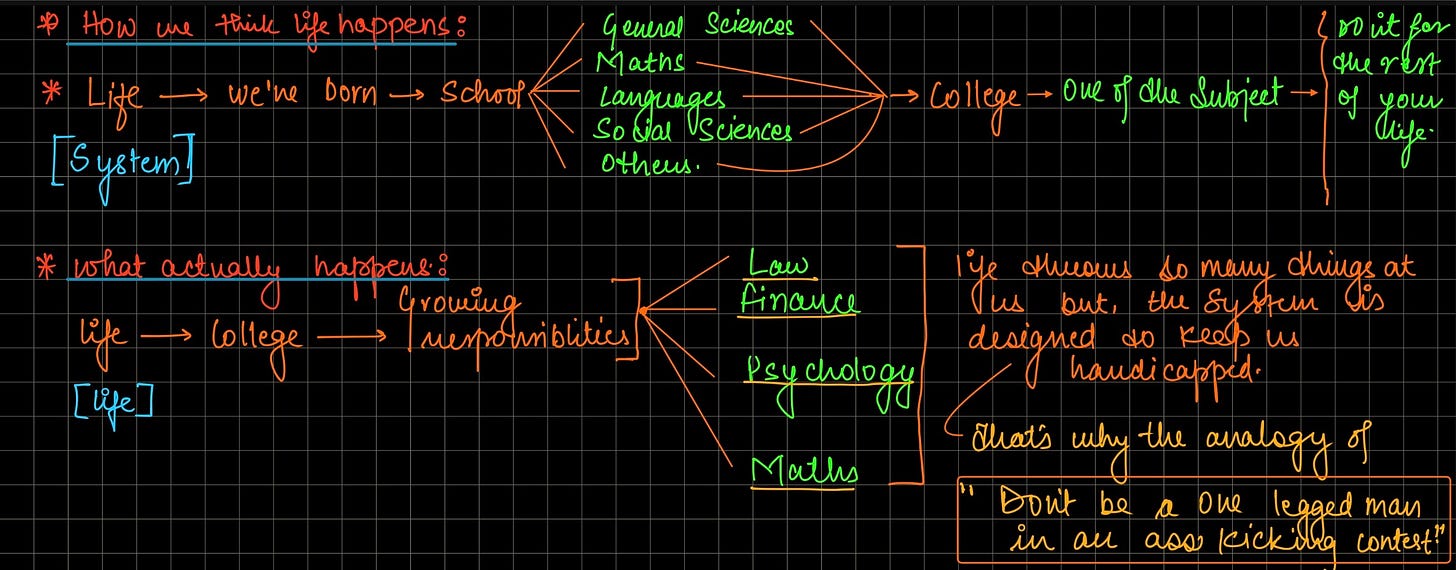 * How we think life happens:
* Life → we're born → School
General Sciences
Maths
Languages
Social Sciences
Others.
→ College → One of the Subject →
Do it for
the rest
of your
life.
[System]
* What actually happens:
life → College → Growing
responsiblities
[life]
Law
finance
Psychology
Maths
life throws so many things at
us but, the System is
designed to keep us
handicapped.
that's why the analogy of
"Don't be a one legged man
in an ass kicking contest"